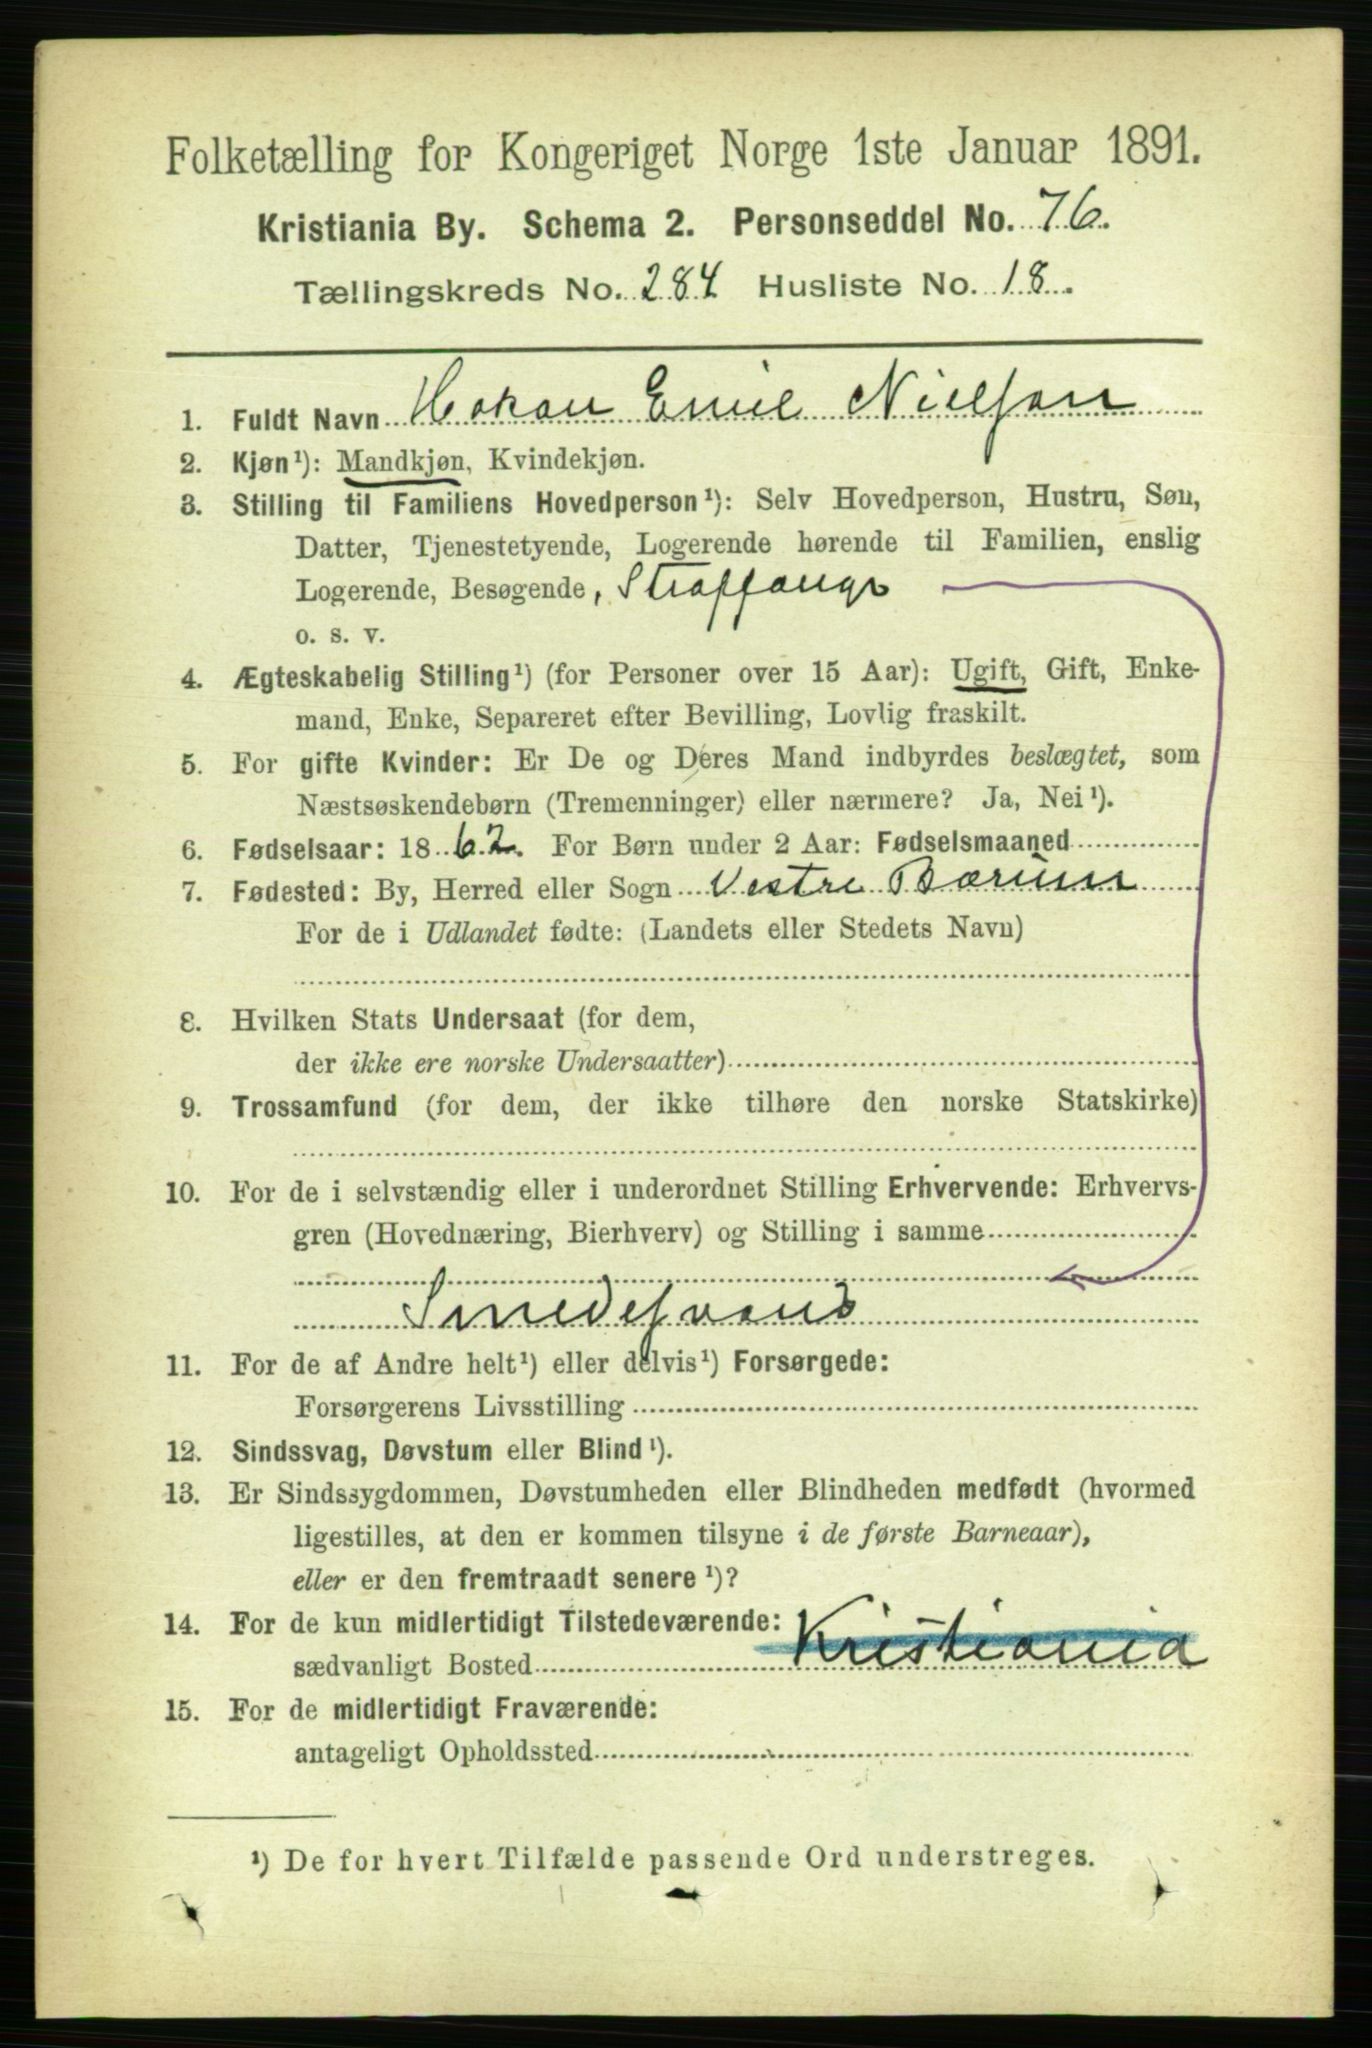 Folketælling for Kongeriget Norge 1ste Januar 1891.
Kristiania By. Schema 2. Personseddel No. 76.
Tællingskreds No. 284 Husliste No. 18.
1. Fuldt Navn Hakon Emil Nielsen
2. Kjøn¹): Mandkjøn, Kvindekjøn.
3. Stilling til Familiens Hovedperson¹): Selv Hovedperson, Hustru, Søn,
Datter, Tjenestetyende, Logerende hørende til Familien, enslig
Logerende, Besøgende, Straffange
o. s. v.
4. Ægteskabelig Stilling¹) (for Personer over 15 Aar): Ugift, Gift, Enke-
mand, Enke, Separeret efter Bevilling, Lovlig fraskilt.
5. For gifte Kvinder: Er De og Deres Mand indbyrdes beslægtet, som
Næstsøskendebørn (Tremenninger) eller nærmere? Ja, Nei¹).
6. Fødselsaar: 1862. For Børn under 2 Aar: Fødselsmaaned
7. Fødested: By, Herred eller Sogn Vestre Bærum
For de i Udlandet fødte: (Landets eller Stedets Navn)
8. Hvilken Stats Undersaat (for dem,
der ikke ere norske Undersaatter)
9. Trossamfund (for dem, der ikke tilhøre den norske Statskirke)
10. For de i selvstændig eller i underordnet Stilling Erhvervende: Erhvervs-
gren (Hovednæring, Bierhverv) og Stilling i samme
Smedesvend
11. For de af Andre helt¹) eller delvis¹) Forsørgede:
Forsørgerens Livsstilling
12. Sindssvag, Døvstum eller Blind¹).
13. Er Sindssygdommen, Døvstumheden eller Blindheden medfødt (hvormed
ligestilles, at den er kommen tilsyne i de første Barneaar),
eller er den fremtraadt senere¹)?
14. For de kun midlertidigt Tilstedeværende:
sædvanligt Bosted Kristiania
15. For de midlertidigt Fraværende:
antageligt Opholdssted
¹) De for hvert Tilfælde passende Ord understreges.